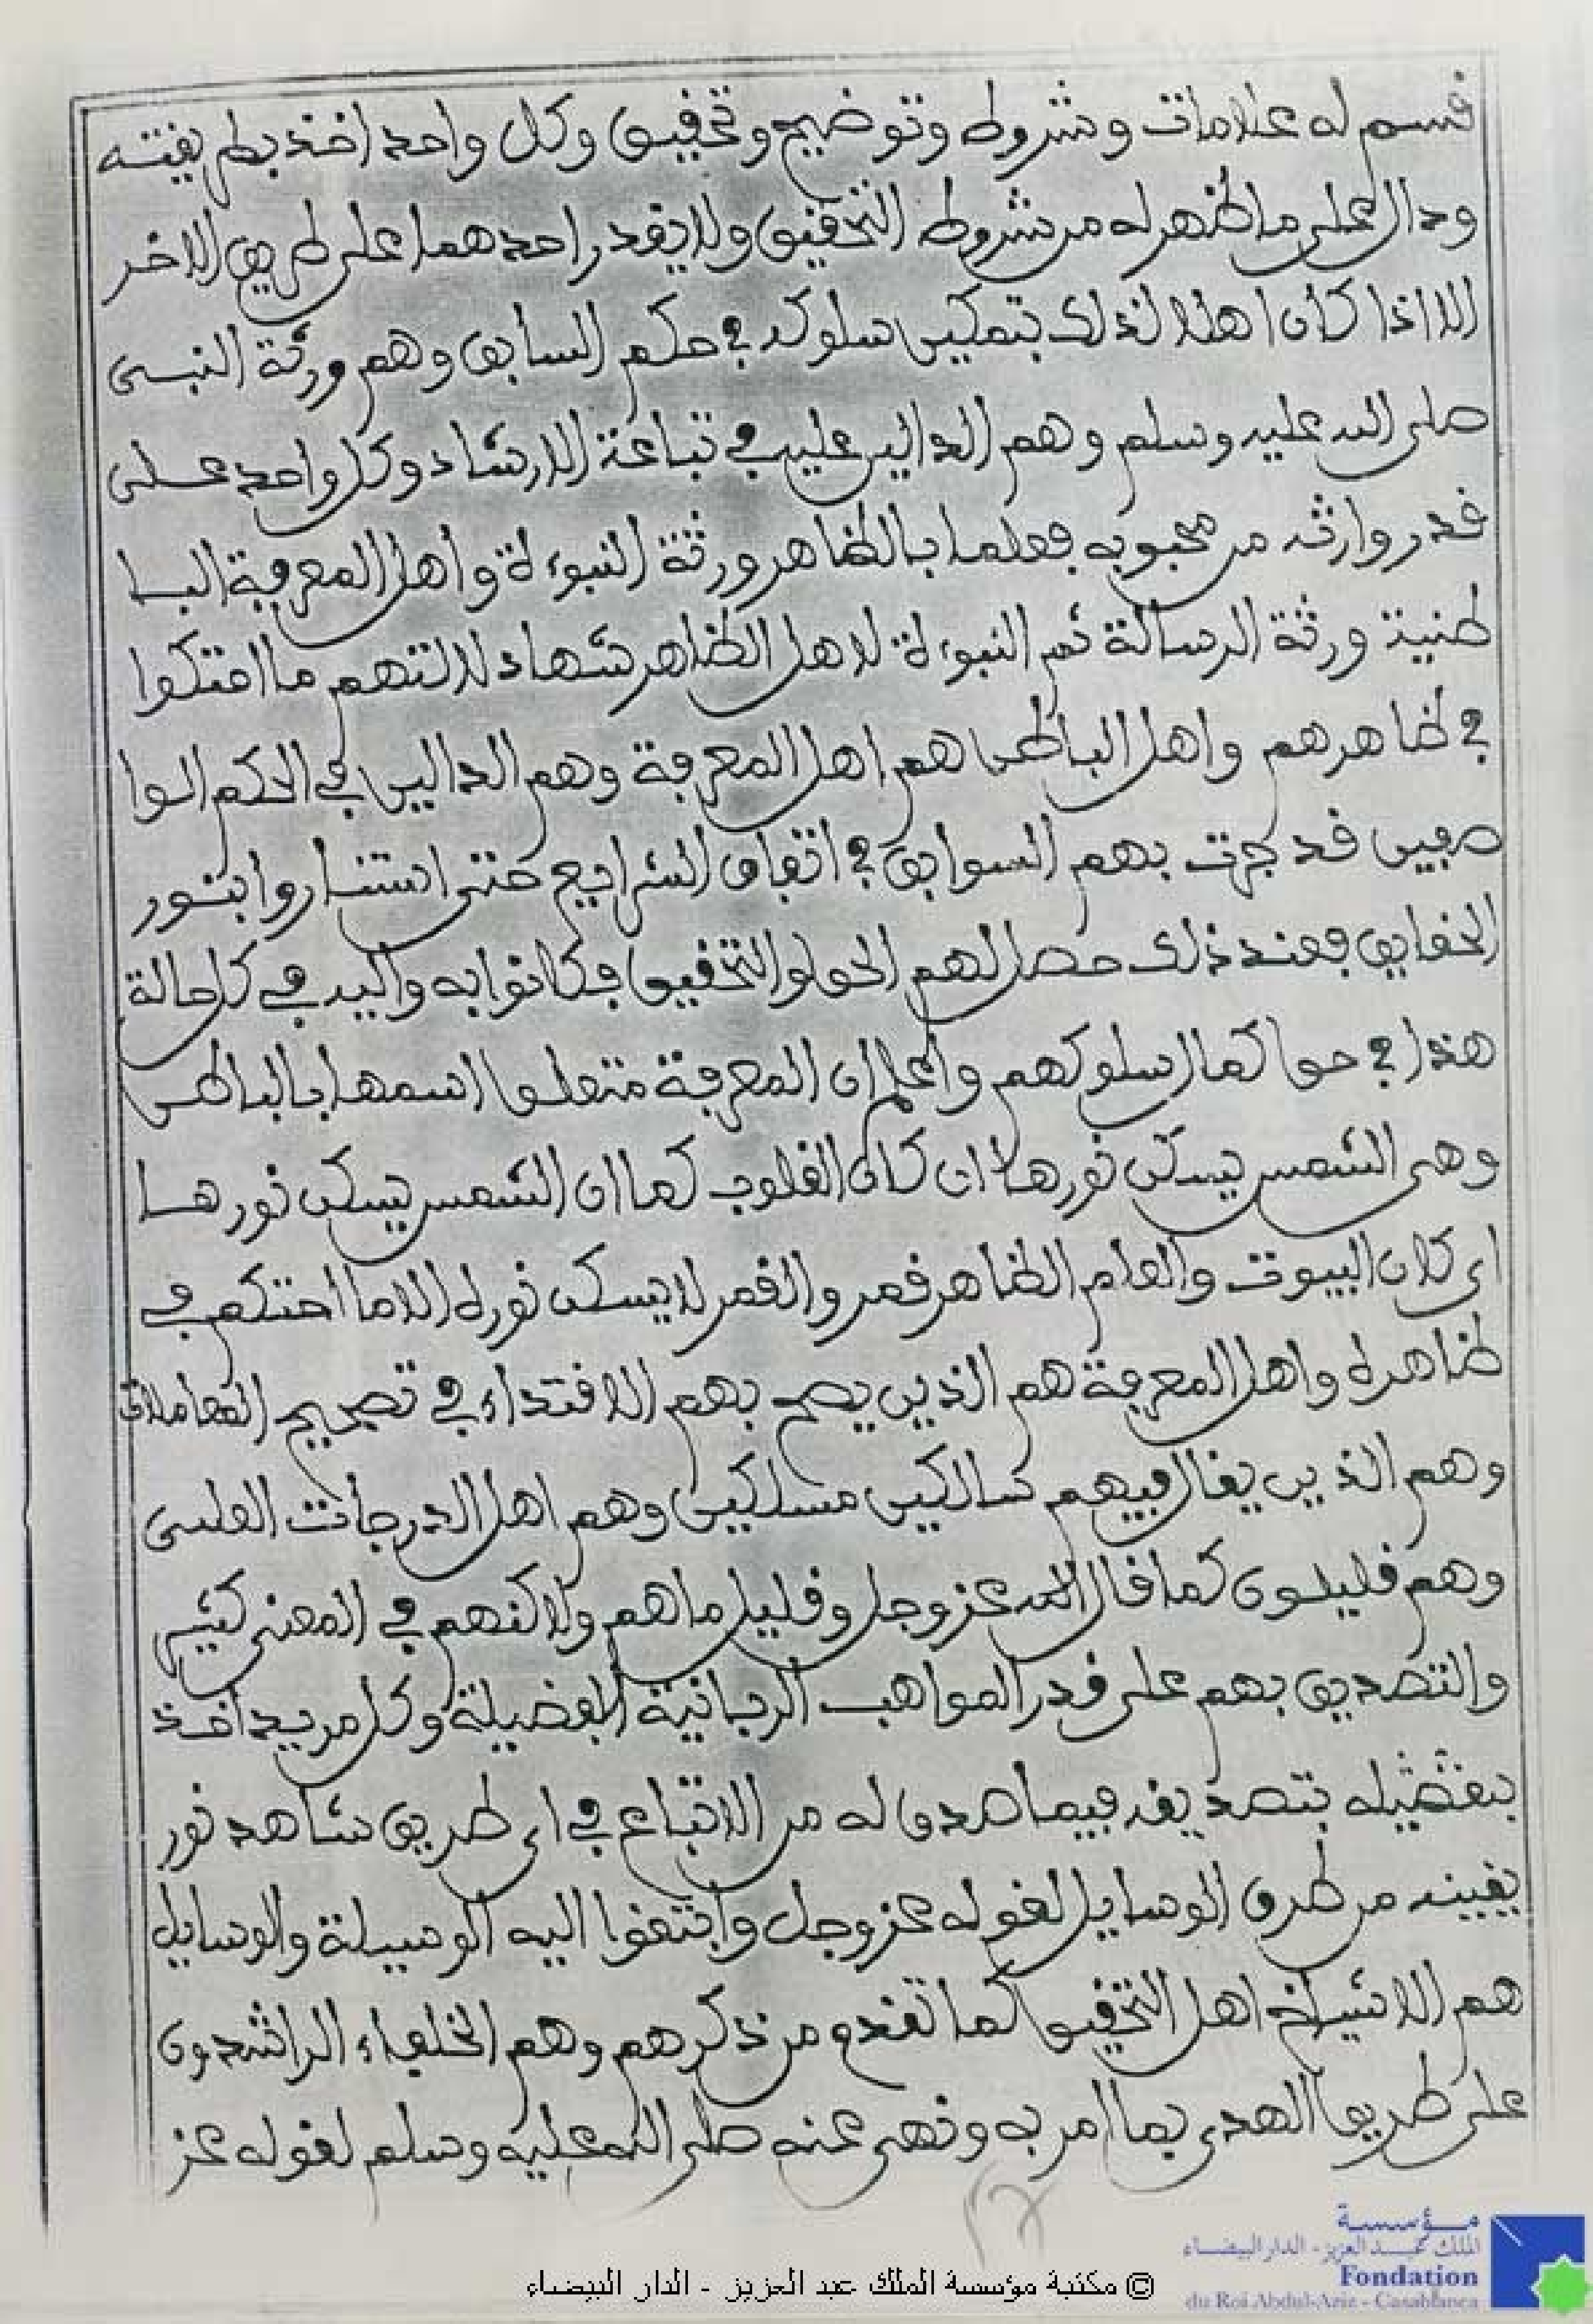 قسم له علامات وشروط وتوضيح وتحقيق وكل واحد اخذ بطريقته
ودال على ما ظهر له من شروط التحقيق ولا يقدر احدهما على طريق الاخر
الا اذا كان اهلا لذلك بتمكين سلوكه في حكم السابق وهم ورثة النبي
صلى الله عليه وسلم وهم الدالين عليه في تباعة الارشاد وكل واحد على
قدر وارثه من محبوبه فعلما بالظاهر ورثة النبوءة واهل المعرفة البا
طنية ورثة الرسالة ثم النبوءة لاهل الظاهر شهاد لالتهم ما احتكموا
في ظاهرهم واهل الباطن هم اهل المعرفة وهم الدالين في الحكم الوا
صفين قد جرت بهم السوابق في اتفاق الشرايع حتى استناروا بنور
الحقايق فعند ذلك حصل لهم الحق والتحقيق فكانوا به واليه في كل حالة
هذا في حق كمال سلوكهم واعلم ان المعرفة متعلق اسمها بالباطن
وهي الشمس يسكن نورها اركان القلوب كما ان الشمس يسكن نورها
اركان البيوت والعلم الظاهر قمر والقمر لا يسكن نوره الا ما احتكم في
ظاهره واهل المعرفة هم الذين يصح بهم الاقتداء في تصحيح المعاملات
وهم الذين يقال فيهم سالكين مسلكين وهم اهل الدرجات العلى
وهم قليلون كما قال الله عز وجل وقليل ما هم ولاكنهم في المعنى كثير
والتصديق بهم على قدر المواهب الربانية الفضيلة وكل مريد اخذ
بتفضيله بتصديقه فيما صدق له من الاتباع في اي طريق شاهد نور
يقينه من طرق الوسايل لقوله عز وجل وابتغوا اليه الوسيلة والوسايل
هم الاشياخ اهل التحقيق كما تقدم من ذكرهم وهم الخلفاء الراشدون
على طريق الهدى بما امر به ونهى عنه صلى الله عليه وسلم لقوله عز
© مكتبة مؤسسة الملك عبد العزيز - الدار البيضاء
مؤسسة
الملك عبد العزيز - الدار البيضاء
Fondation
du Roi Abdul-Aziz - Casablanca